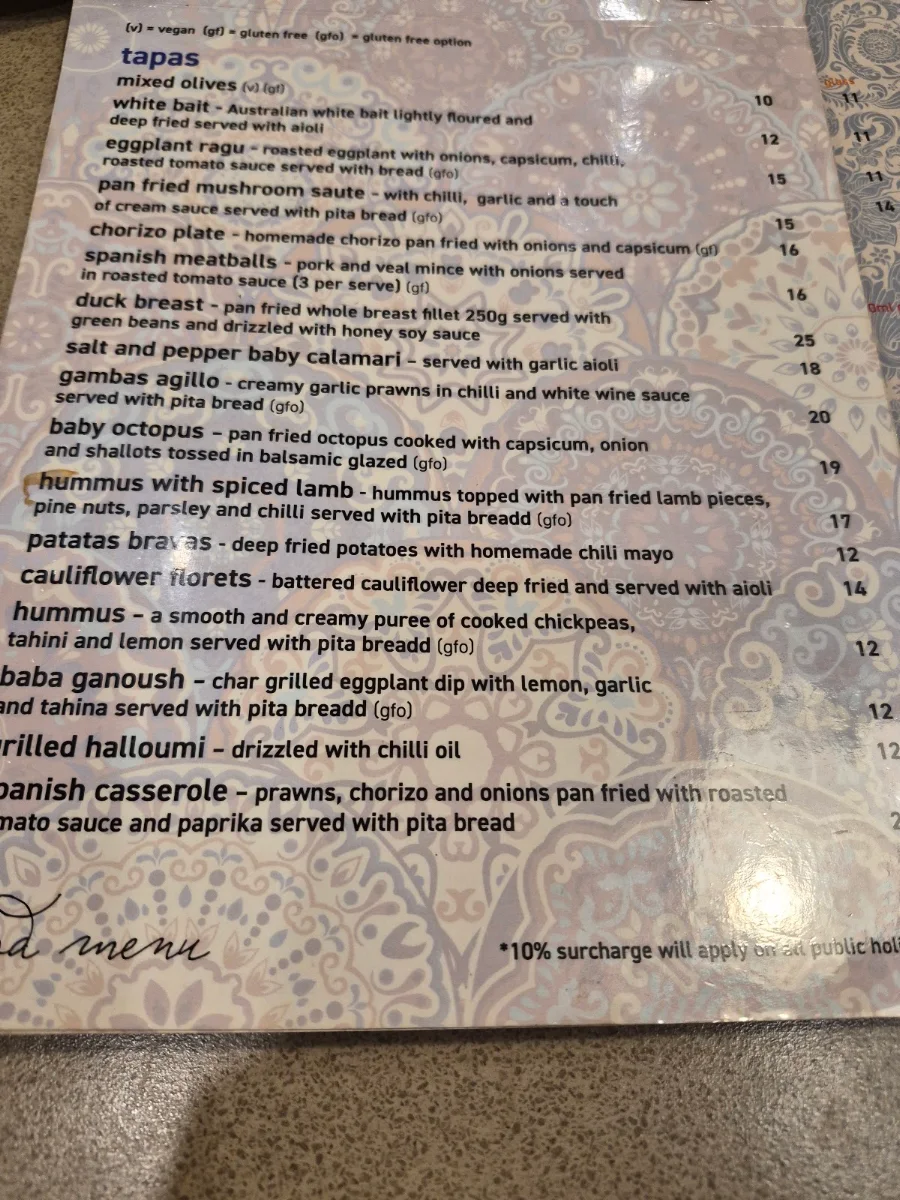 (v) = vegan (gf) = gluten free (gfo) = gluten free option
tapas
mixed olives (v) (gf) 10
white bait - Australian white bait lightly floured and
deep fried served with aioli 12
eggplant ragu - roasted eggplant with onions, capsicum, chilli,
roasted tomato sauce served with bread (gfo) 15
pan fried mushroom saute - with chilli, garlic and a touch
of cream sauce served with pita bread (gfo) 15
chorizo plate - homemade chorizo pan fried with onions and capsicum (gf) 16
spanish meatballs - pork and veal mince with onions served
in roasted tomato sauce (3 per serve) (gf) 16
duck breast - pan fried whole breast fillet 250g served with
green beans and drizzled with honey soy sauce 25
salt and pepper baby calamari - served with garlic aioli 18
gambas agillo - creamy garlic prawns in chilli and white wine sauce
served with pita bread (gfo) 20
baby octopus - pan fried octopus cooked with capsicum, onion
and shallots tossed in balsamic glazed (gfo) 19
hummus with spiced lamb - hummus topped with pan fried lamb pieces,
pine nuts, parsley and chilli served with pita breadd (gfo) 17
patatas bravas - deep fried potatoes with homemade chili mayo 12
cauliflower florets - battered cauliflower deep fried and served with aioli 14
hummus - a smooth and creamy puree of cooked chickpeas,
tahini and lemon served with pita breadd (gfo) 12
baba ganoush - char grilled eggplant dip with lemon, garlic
and tahina served with pita breadd (gfo) 12
rilled halloumi - drizzled with chilli oil 12
panish casserole - prawns, chorizo and onions pan fried with roasted
mato sauce and paprika served with pita bread 2
menu
*10% surcharge will apply on all public holi
11
11
11
14